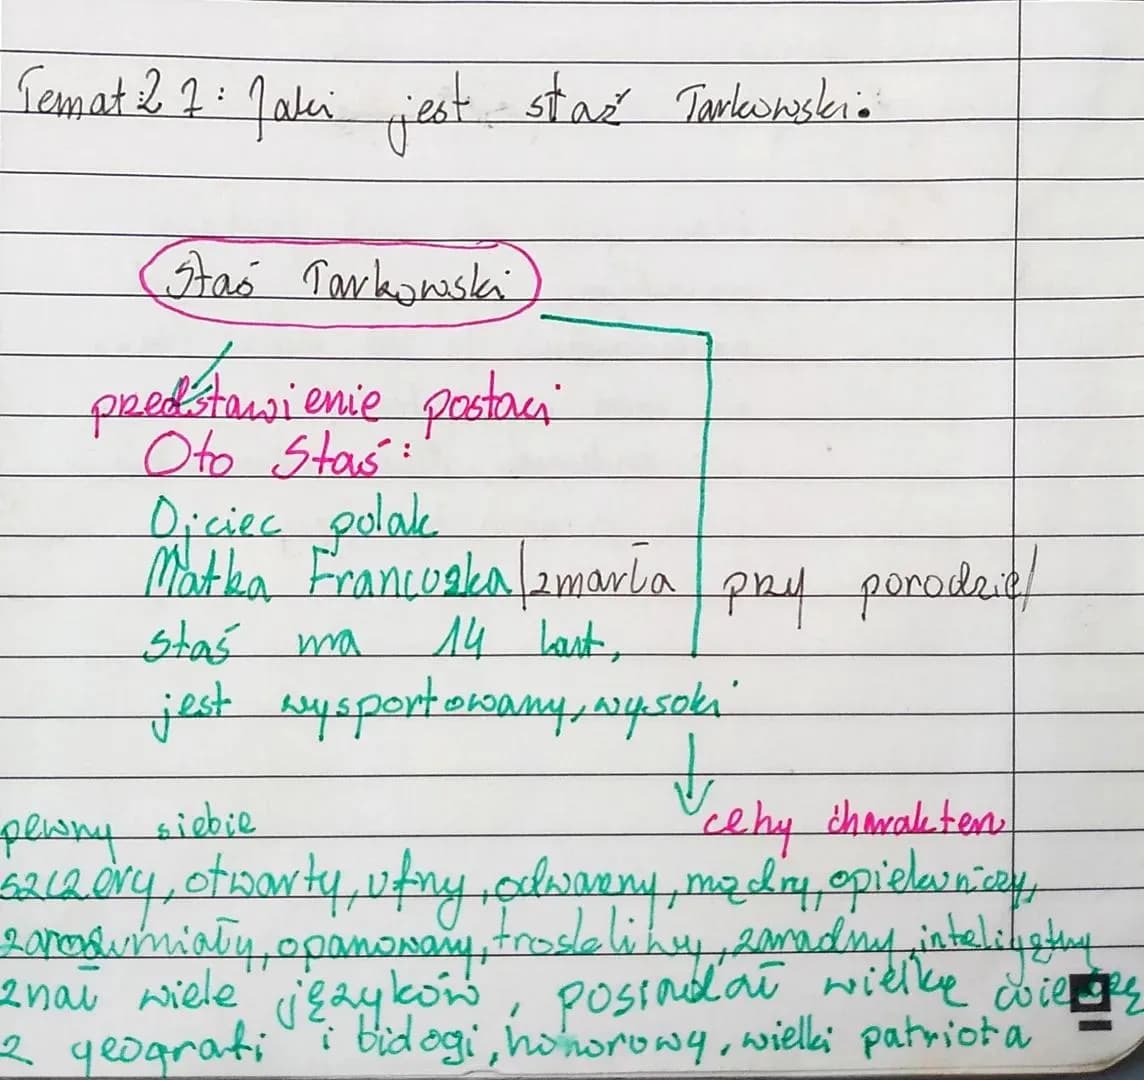 Temat 27: Jaki jest staś Tarkowski.
Staś Tarkowski
przedstawienie postaci
Oto Staś:
Ojciec polak
Matka Francuska/zmarła przy porodzie/
staś ma 14 lat,
jest wysportowany, wysoki
pewny siebie
cehy charakteru
szczery, otwarty, ufny, odważny, mądry, opiekuńczy,
zarozumiały, opanowany, troskliwy, zaradny, inteligetny
znał wiele języków, posiadał wielkę
z geografi i biologi, honorowy, wielki patriota